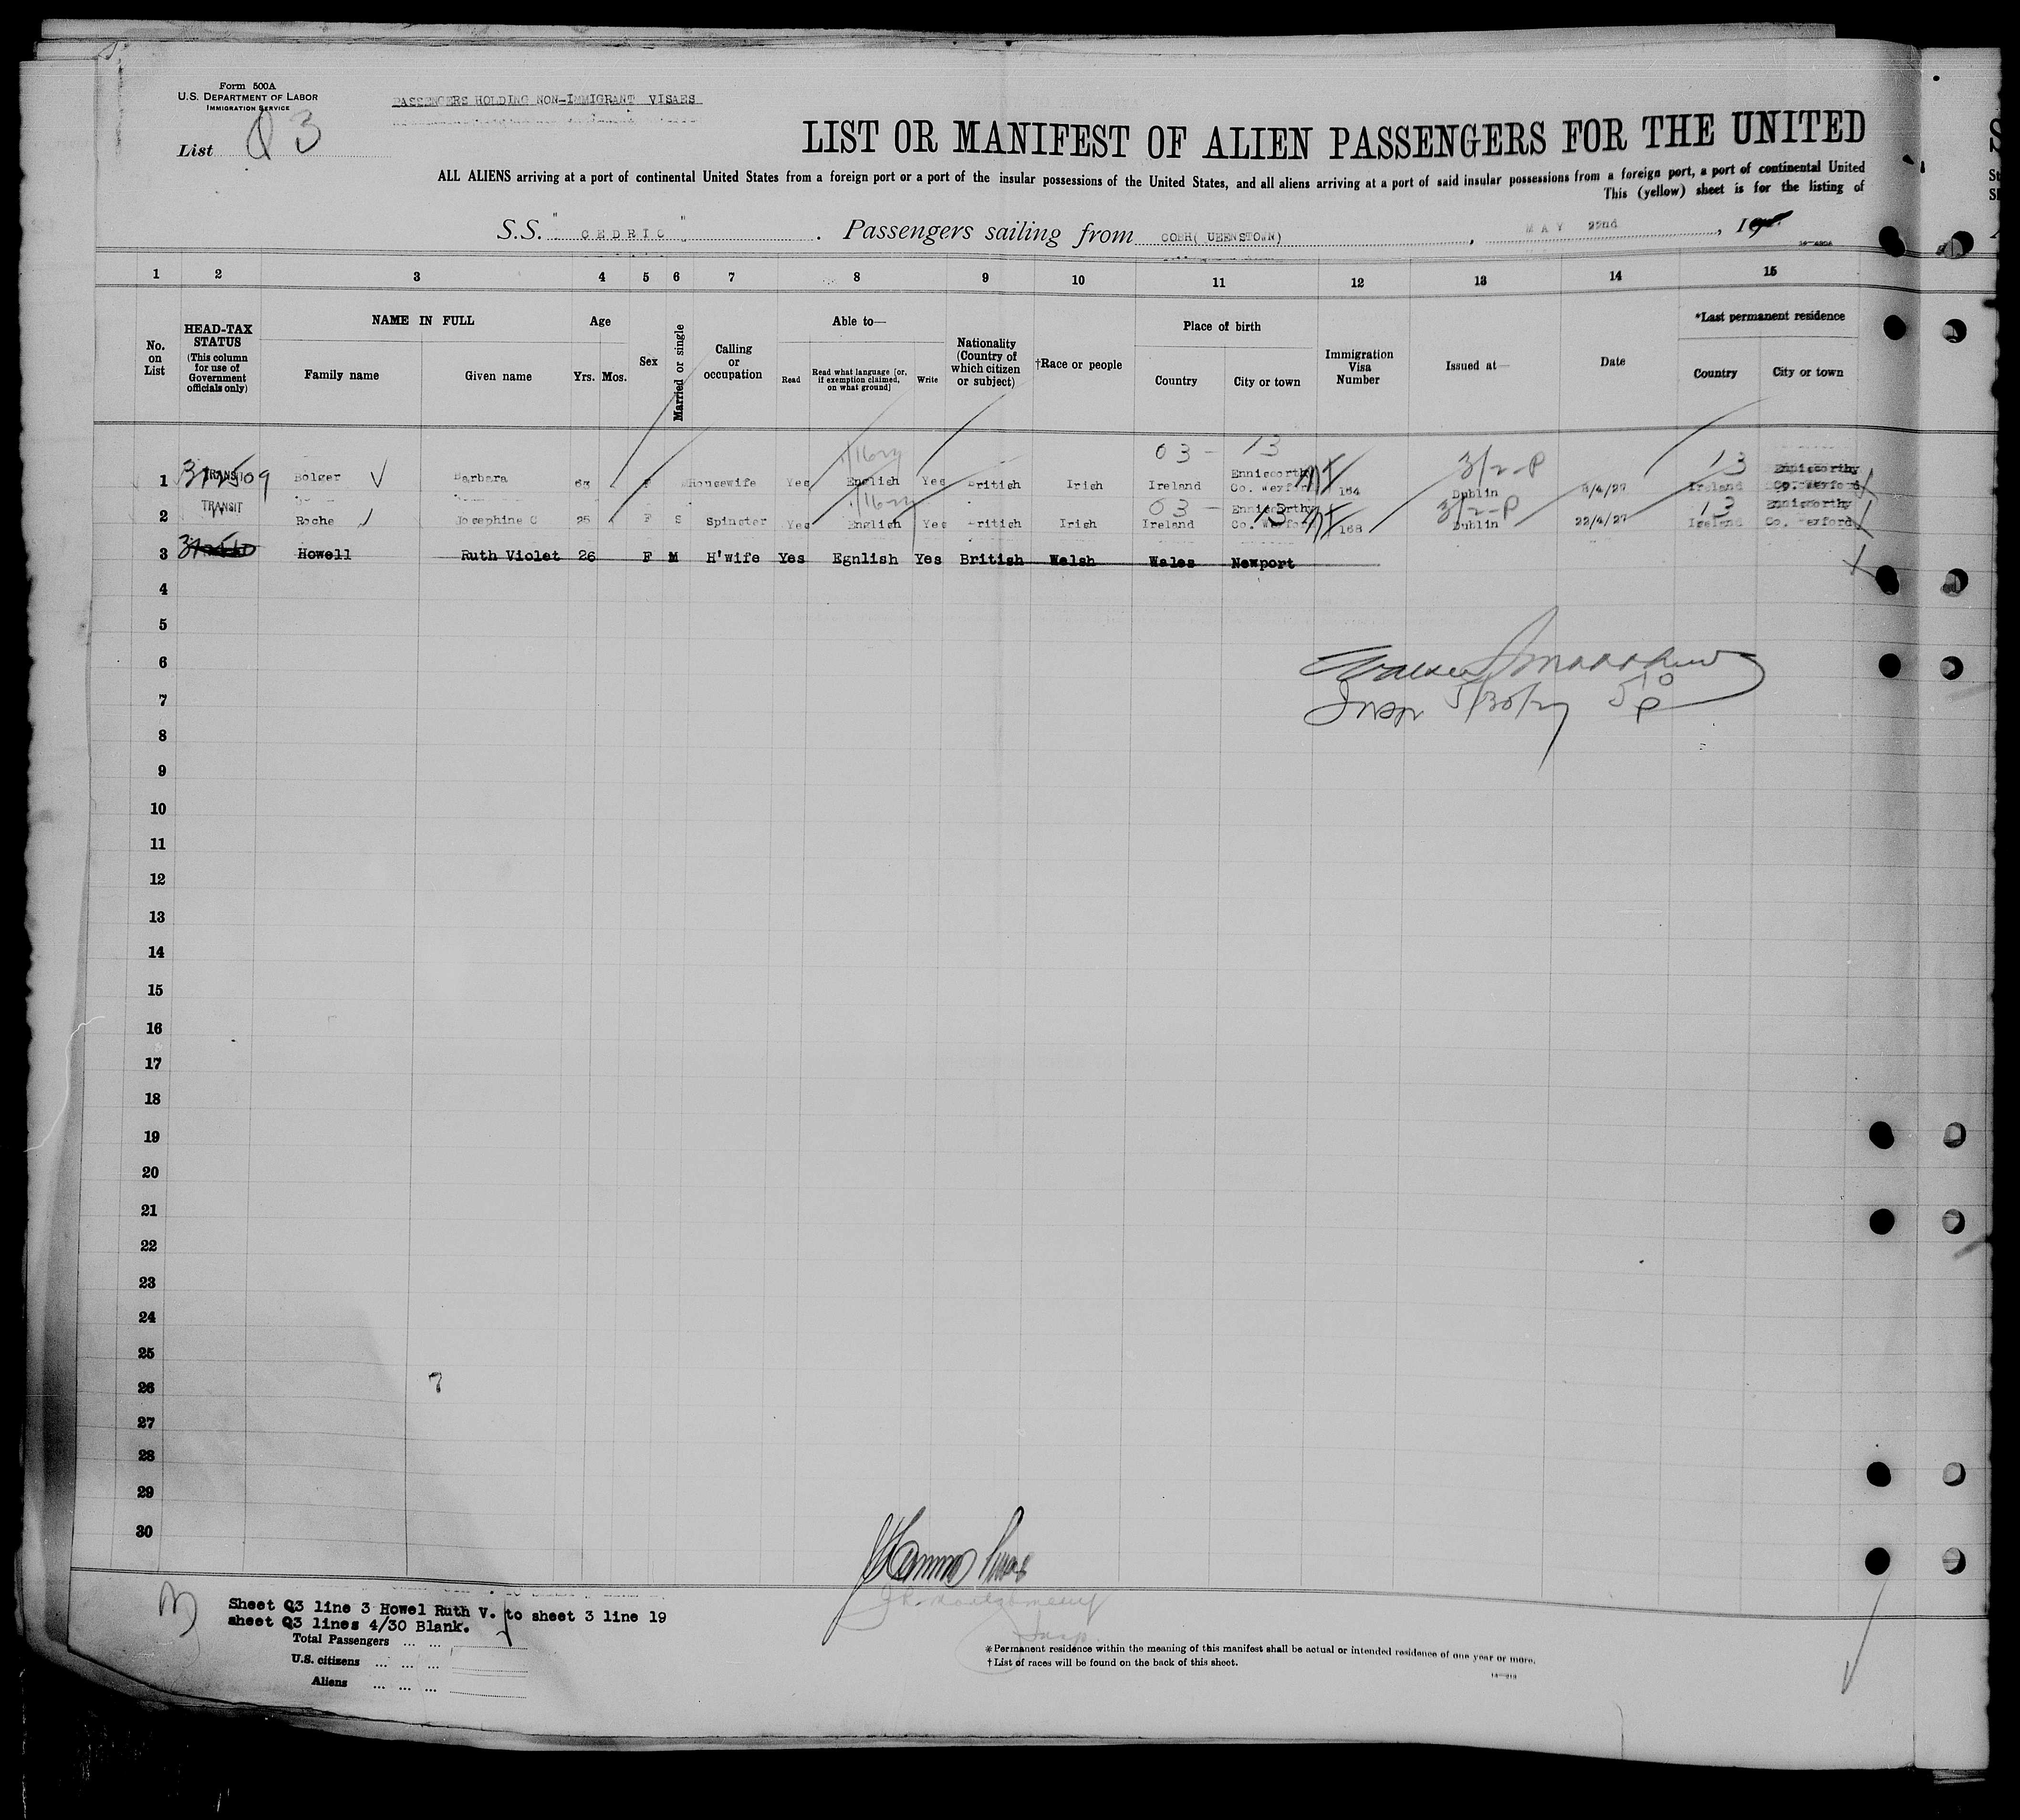 Form 500A
U.S. DEPARTMENT OF LABOR
IMMIGRATION SERVICE
PASSENGERS HOLDING NON-IMMIGRANT VISAES
List Q 3
LIST OR MANIFEST OF ALIEN PASSENGERS FOR THE UNITED
ALL ALIENS arriving at a port of continental United States from a foreign port or a port of the insular possessions of the United States, and all aliens arriving at a port of said insular possessions from a foreign port, a port of continental United
This (yellow) sheet is for the listing of
S.S. " CEDRIC " . Passengers sailing from COBH( UEENSTOWN) , MAY 22nd , 19
1 2 3 4 5 6 7 8 9 10 11 12 13 14 15
No. on List
HEAD-TAX STATUS (This column for use of Government officials only)
NAME IN FULL
Family name
Given name
Age
Yrs. Mos.
Sex
Married or single
Calling or occupation
Able to—
Read
Read what language [or, if exemption claimed, on what ground]
Write
Nationality (Country of which citizen or subject)
†Race or people
Place of birth
Country
City or town
Immigration Visa Number
Issued at—
Date
*Last permanent residence
Country
City or town
03 - 13 3/2-P 13
1 TRANSIT Bolger Barbara 63 F Housewife Yes English Yes British Irish Ireland Enniscorthy Co. Wexford 164 Dublin /4/27 Ireland Enniscorthy Co. Wexford
03 - 13 3/2-P 13
2 TRANSIT Roche Josephine C 25 F S Spinster Yes English Yes British Irish Ireland Enniscorthy Co. Wexford 168 Dublin 22/4/27 Ireland Enniscorthy Co. Wexford
3 Howell Ruth Violet 26 F M H'wife Yes Egnlish Yes British Welsh Wales Newport
4
5
6
7
Insp 5/30/27 5 10 P
8
9
10
11
12
13
14
15
16
17
18
19
20
21
22
23
24
25
26
27
28
29
30
Sheet Q3 line 3 Howel Ruth V. to sheet 3 line 19
sheet Q3 lines 4/30 Blank.
Total Passengers ... ...
U.S. citizens ... ... ...
Aliens ... ... ...
Insp.
*Permanent residence within the meaning of this manifest shall be actual or intended residence of one year or more.
†List of races will be found on the back of this sheet.